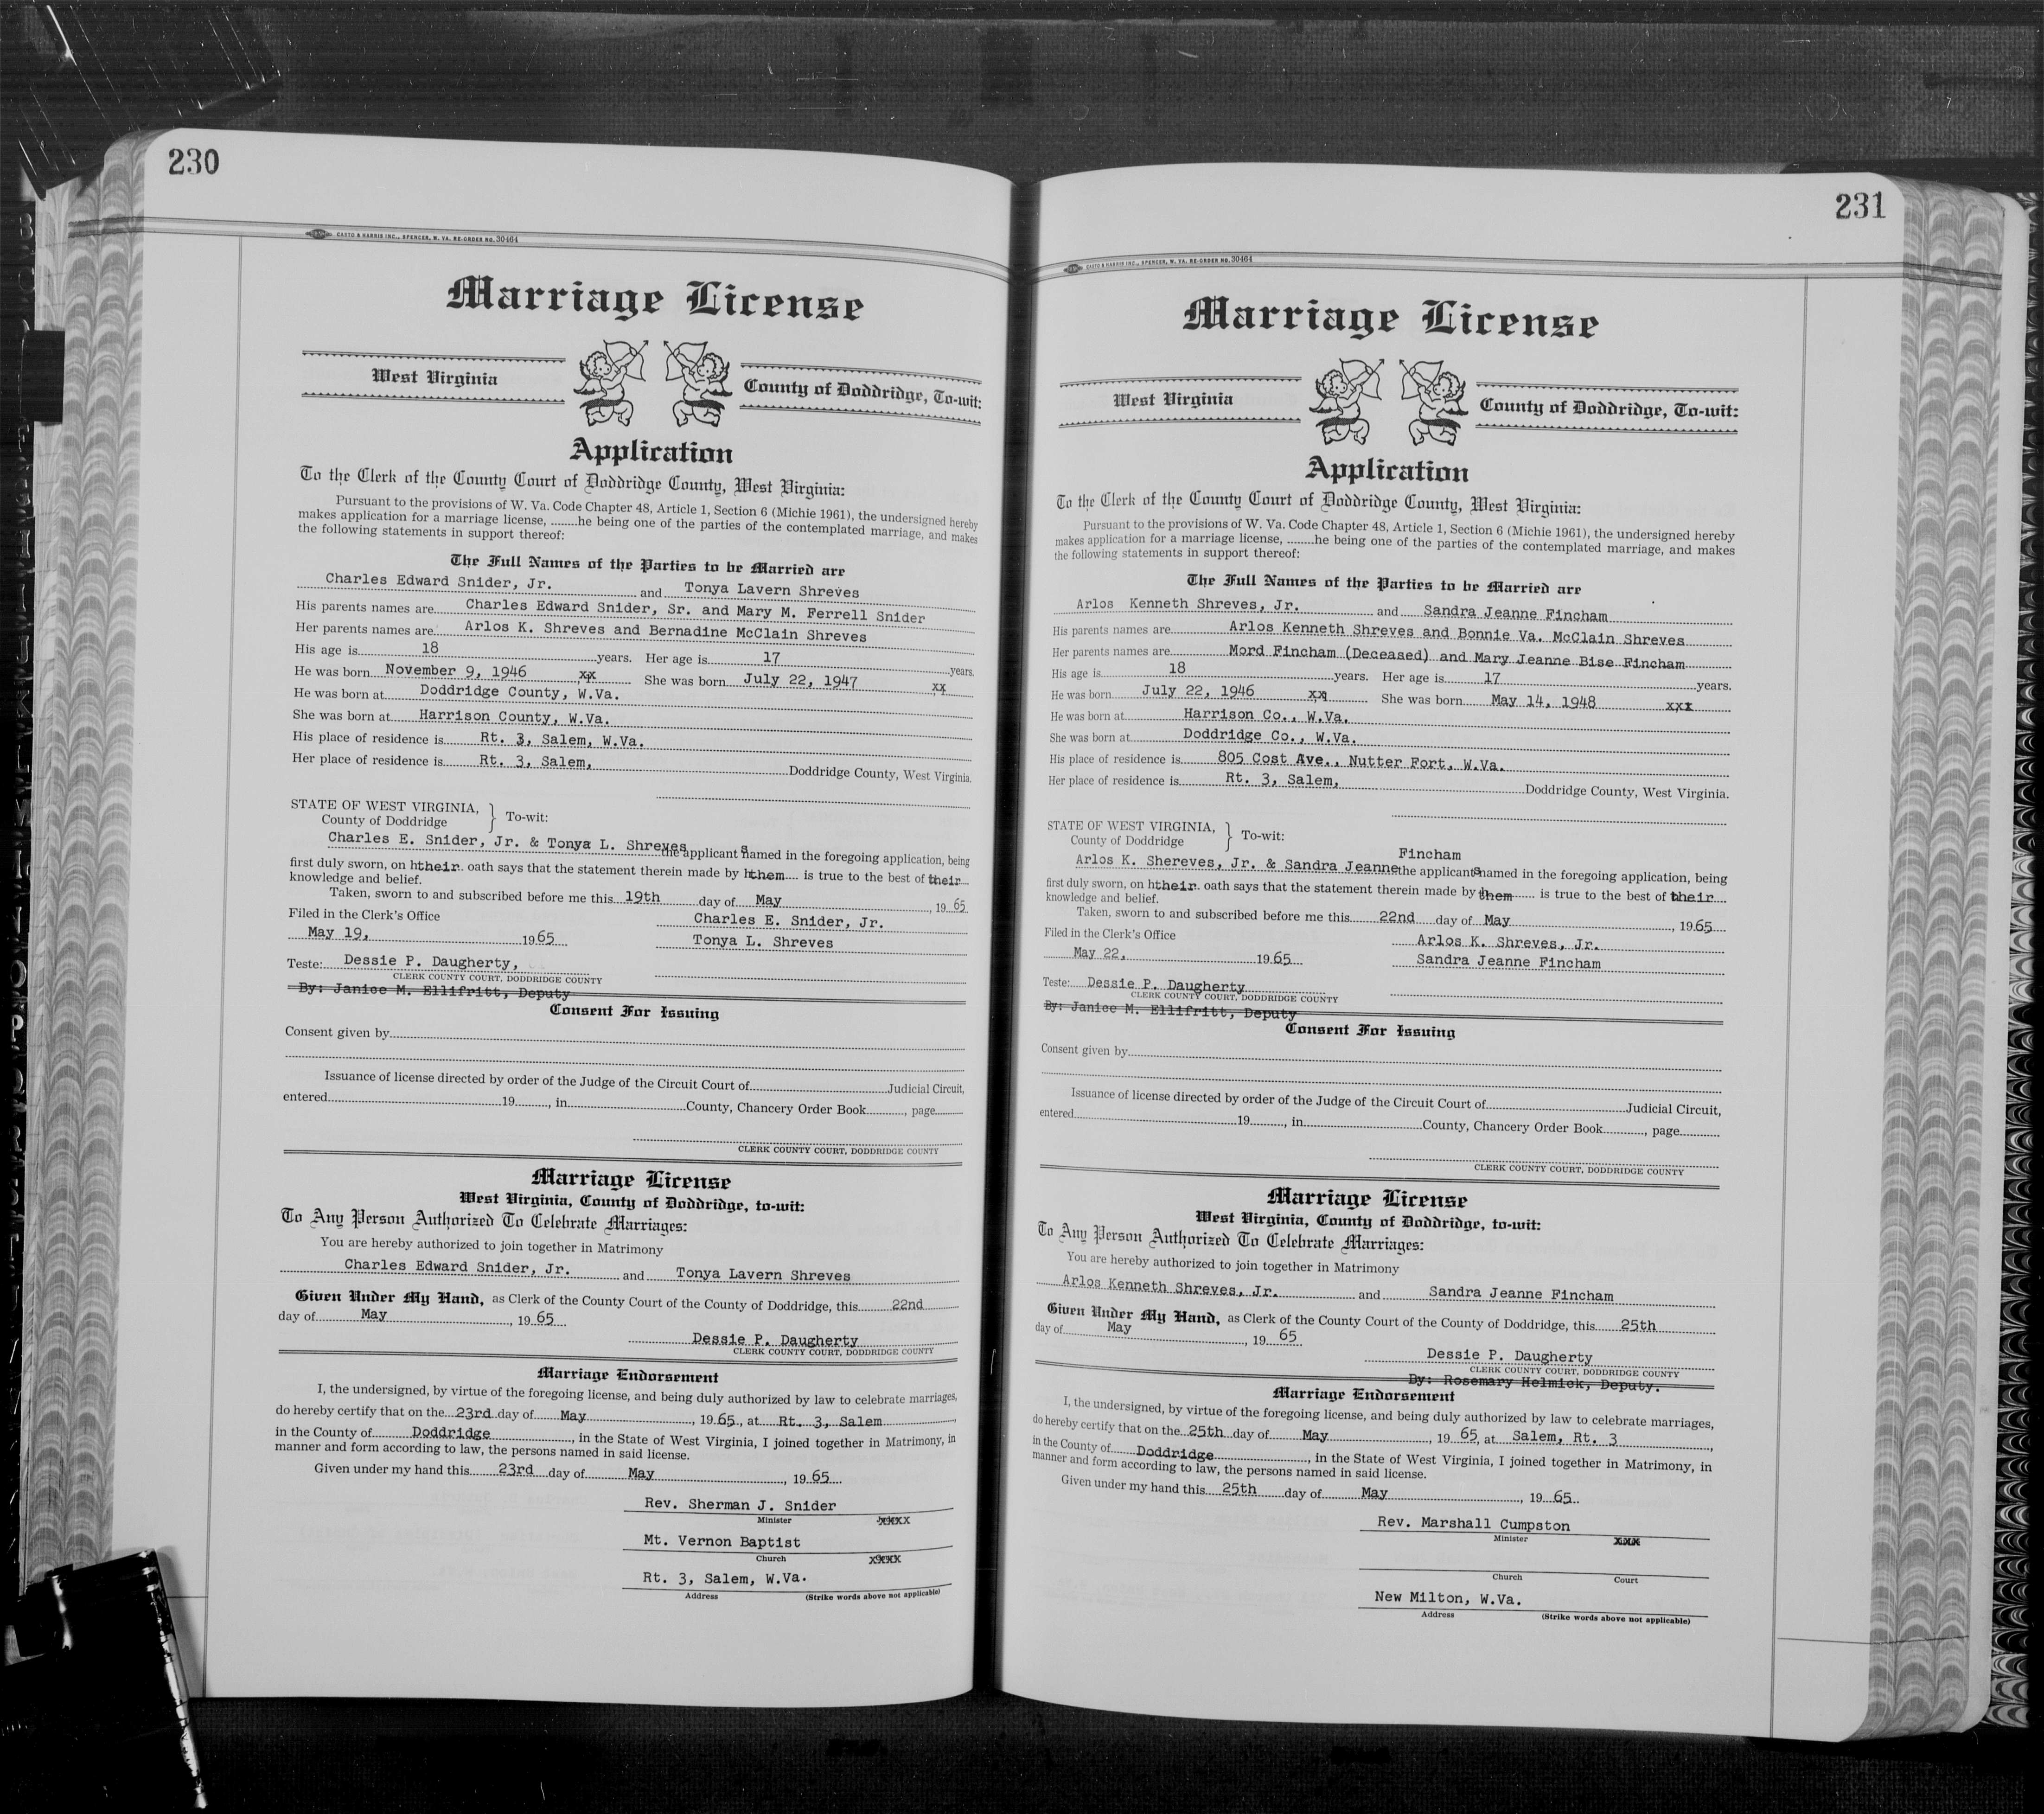 230
CASTO & HARRIS INC., SPENCER, W. VA. RE-ORDER NO. 30464
Marriage License
West Virginia
County of Doddridge, To-wit:
Application
To the Clerk of the County Court of Doddridge County, West Virginia:
Pursuant to the provisions of W. Va. Code Chapter 48, Article 1, Section 6 (Michie 1961), the undersigned hereby
makes application for a marriage license, ........he being one of the parties of the contemplated marriage, and makes
the following statements in support thereof:
The Full Names of the Parties to be Married are
Charles Edward Snider, Jr. and Tonya Lavern Shreves
His parents names are Charles Edward Snider, Sr. and Mary M. Ferrell Snider
Her parents names are Arlos K. Shreves and Bernadine McClain Shreves
His age is 18 years. Her age is 17 years.
He was born November 9, 1946 xx She was born July 22, 1947 xx
He was born at Doddridge County, W.Va.
She was born at Harrison County, W.Va.
His place of residence is Rt. 3, Salem, W.Va.
Her place of residence is Rt. 3, Salem, Doddridge County, West Virginia.
STATE OF WEST VIRGINIA,
County of Doddridge } To-wit:
Charles E. Snider, Jr. & Tonya L. Shreves the applicants named in the foregoing application, being
first duly sworn, on htheir oath says that the statement therein made by hthem is true to the best of their
knowledge and belief.
Taken, sworn to and subscribed before me this 19th day of May, 1965
Filed in the Clerk's Office Charles E. Snider, Jr.
May 19, 1965 Tonya L. Shreves
Teste: Dessie P. Daugherty,
CLERK COUNTY COURT, DODDRIDGE COUNTY
By: Janice M. Ellifritt, Deputy
Consent For Issuing
Consent given by
Issuance of license directed by order of the Judge of the Circuit Court of Judicial Circuit,
entered 19, in County, Chancery Order Book, page
CLERK COUNTY COURT, DODDRIDGE COUNTY
Marriage License
West Virginia, County of Doddridge, to-wit:
To Any Person Authorized To Celebrate Marriages:
You are hereby authorized to join together in Matrimony
Charles Edward Snider, Jr. and Tonya Lavern Shreves
Given Under My Hand, as Clerk of the County Court of the County of Doddridge, this 22nd
day of May, 1965
Dessie P. Daugherty
CLERK COUNTY COURT, DODDRIDGE COUNTY
Marriage Endorsement
I, the undersigned, by virtue of the foregoing license, and being duly authorized by law to celebrate marriages,
do hereby certify that on the 23rd day of May, 1965, at Rt. 3, Salem
in the County of Doddridge, in the State of West Virginia, I joined together in Matrimony, in
manner and form according to law, the persons named in said license.
Given under my hand this 23rd day of May, 1965
Rev. Sherman J. Snider
Minister xxxx
Mt. Vernon Baptist
Church xxxx
Rt. 3, Salem, W.Va.
Address (Strike words above not applicable)
231
CASTO & HARRIS INC., SPENCER, W. VA. RE-ORDER NO. 30464
Marriage License
West Virginia
County of Doddridge, To-wit:
Application
To the Clerk of the County Court of Doddridge County, West Virginia:
Pursuant to the provisions of W. Va. Code Chapter 48, Article 1, Section 6 (Michie 1961), the undersigned hereby
makes application for a marriage license, ........he being one of the parties of the contemplated marriage, and makes
the following statements in support thereof:
The Full Names of the Parties to be Married are
Arlos Kenneth Shreves, Jr. and Sandra Jeanne Fincham
His parents names are Arlos Kenneth Shreves and Bonnie Va. McClain Shreves
Her parents names are Mord Fincham (Deceased) and Mary Jeanne Bise Fincham
His age is 18 years. Her age is 17 years.
He was born July 22, 1946 xx She was born May 14, 1948 xxx
He was born at Harrison Co., W.Va.
She was born at Doddridge Co., W.Va.
His place of residence is 805 Cost Ave., Nutter Fort, W.Va.
Her place of residence is Rt. 3, Salem, Doddridge County, West Virginia.
STATE OF WEST VIRGINIA,
County of Doddridge } To-wit:
Fincham
Arlos K. Shereves, Jr. & Sandra Jeanne the applicants named in the foregoing application, being
first duly sworn, on htheir oath says that the statement therein made by them is true to the best of their
knowledge and belief.
Taken, sworn to and subscribed before me this 22nd day of May, 1965
Filed in the Clerk's Office Arlos K. Shreves, Jr.
May 22, 1965 Sandra Jeanne Fincham
Teste: Dessie P. Daugherty
CLERK COUNTY COURT, DODDRIDGE COUNTY
By: Janice M. Ellifritt, Deputy
Consent For Issuing
Consent given by
Issuance of license directed by order of the Judge of the Circuit Court of Judicial Circuit,
entered 19, in County, Chancery Order Book, page
CLERK COUNTY COURT, DODDRIDGE COUNTY
Marriage License
West Virginia, County of Doddridge, to-wit:
To Any Person Authorized To Celebrate Marriages:
You are hereby authorized to join together in Matrimony
Arlos Kenneth Shreves, Jr. and Sandra Jeanne Fincham
Given Under My Hand, as Clerk of the County Court of the County of Doddridge, this 25th
day of May, 1965
Dessie P. Daugherty
CLERK COUNTY COURT, DODDRIDGE COUNTY
By: Rosemary Helmick, Deputy.
Marriage Endorsement
I, the undersigned, by virtue of the foregoing license, and being duly authorized by law to celebrate marriages,
do hereby certify that on the 25th day of May, 1965, at Salem, Rt. 3
in the County of Doddridge, in the State of West Virginia, I joined together in Matrimony, in
manner and form according to law, the persons named in said license.
Given under my hand this 25th day of May, 1965
Rev. Marshall Cumpston
Minister xxx
Church Court
New Milton, W.Va.
Address (Strike words above not applicable)